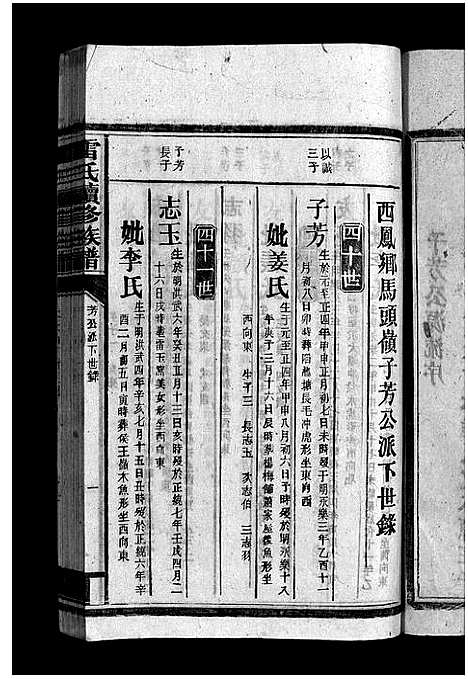 西鳳鄉馬頭嶺子芳公派下世錄
四十世
以誠
三子
子芳
生於元至正四年甲申正月初七日未時殁于明永樂三年乙酉十一
月初八日卯時葬陪樵塘長毛冲虎形坐東向西
妣姜氏
生于元至正四年甲申八月初六日子時殁于明永樂十八
年庚子三月十六日辰時葬楊梅鋪蕭家屋後魚形坐
西向東 生子三 長志玉 次志伯 三志羽
四十一世
子芳
長子
志玉
生於明洪武六年癸丑正月十三日亥時殁於正統七年壬戌四月二
十六日戌時葬南玉窩美女形坐西向東
妣李氏
生于明洪武四年辛亥七月十五日丑時殁於正統六年辛
酉二月初五日寅時葬侯王嶺木魚形坐西向東
雷氏續修族譜
芳公派下世錄
一
子芳公源流序